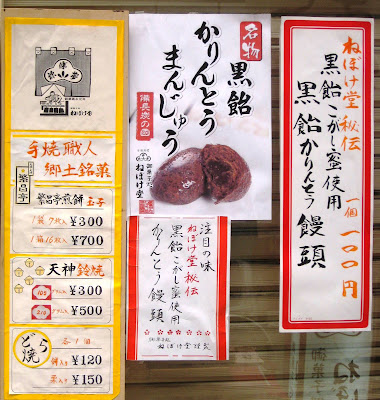 手焼職人
郷土銘菓
繁昌亭
繁昌亭煎餅 玉子
¥300
¥700
天神鈴焼
¥300
¥500
どら焼
各1個
¥120
¥150
名物
黒飴
かりんとう
まんじゅう
備長炭の国
御菓子処
ねぼけ堂
注目の味
ねぼけ堂秘伝
黒飴こがし蜜使用
かりんとう饅頭
ねぼけ堂謹製
ねぼけ堂秘伝 一個 一〇〇円
黒飴こがし蜜使用
黒飴かりんとう饅頭